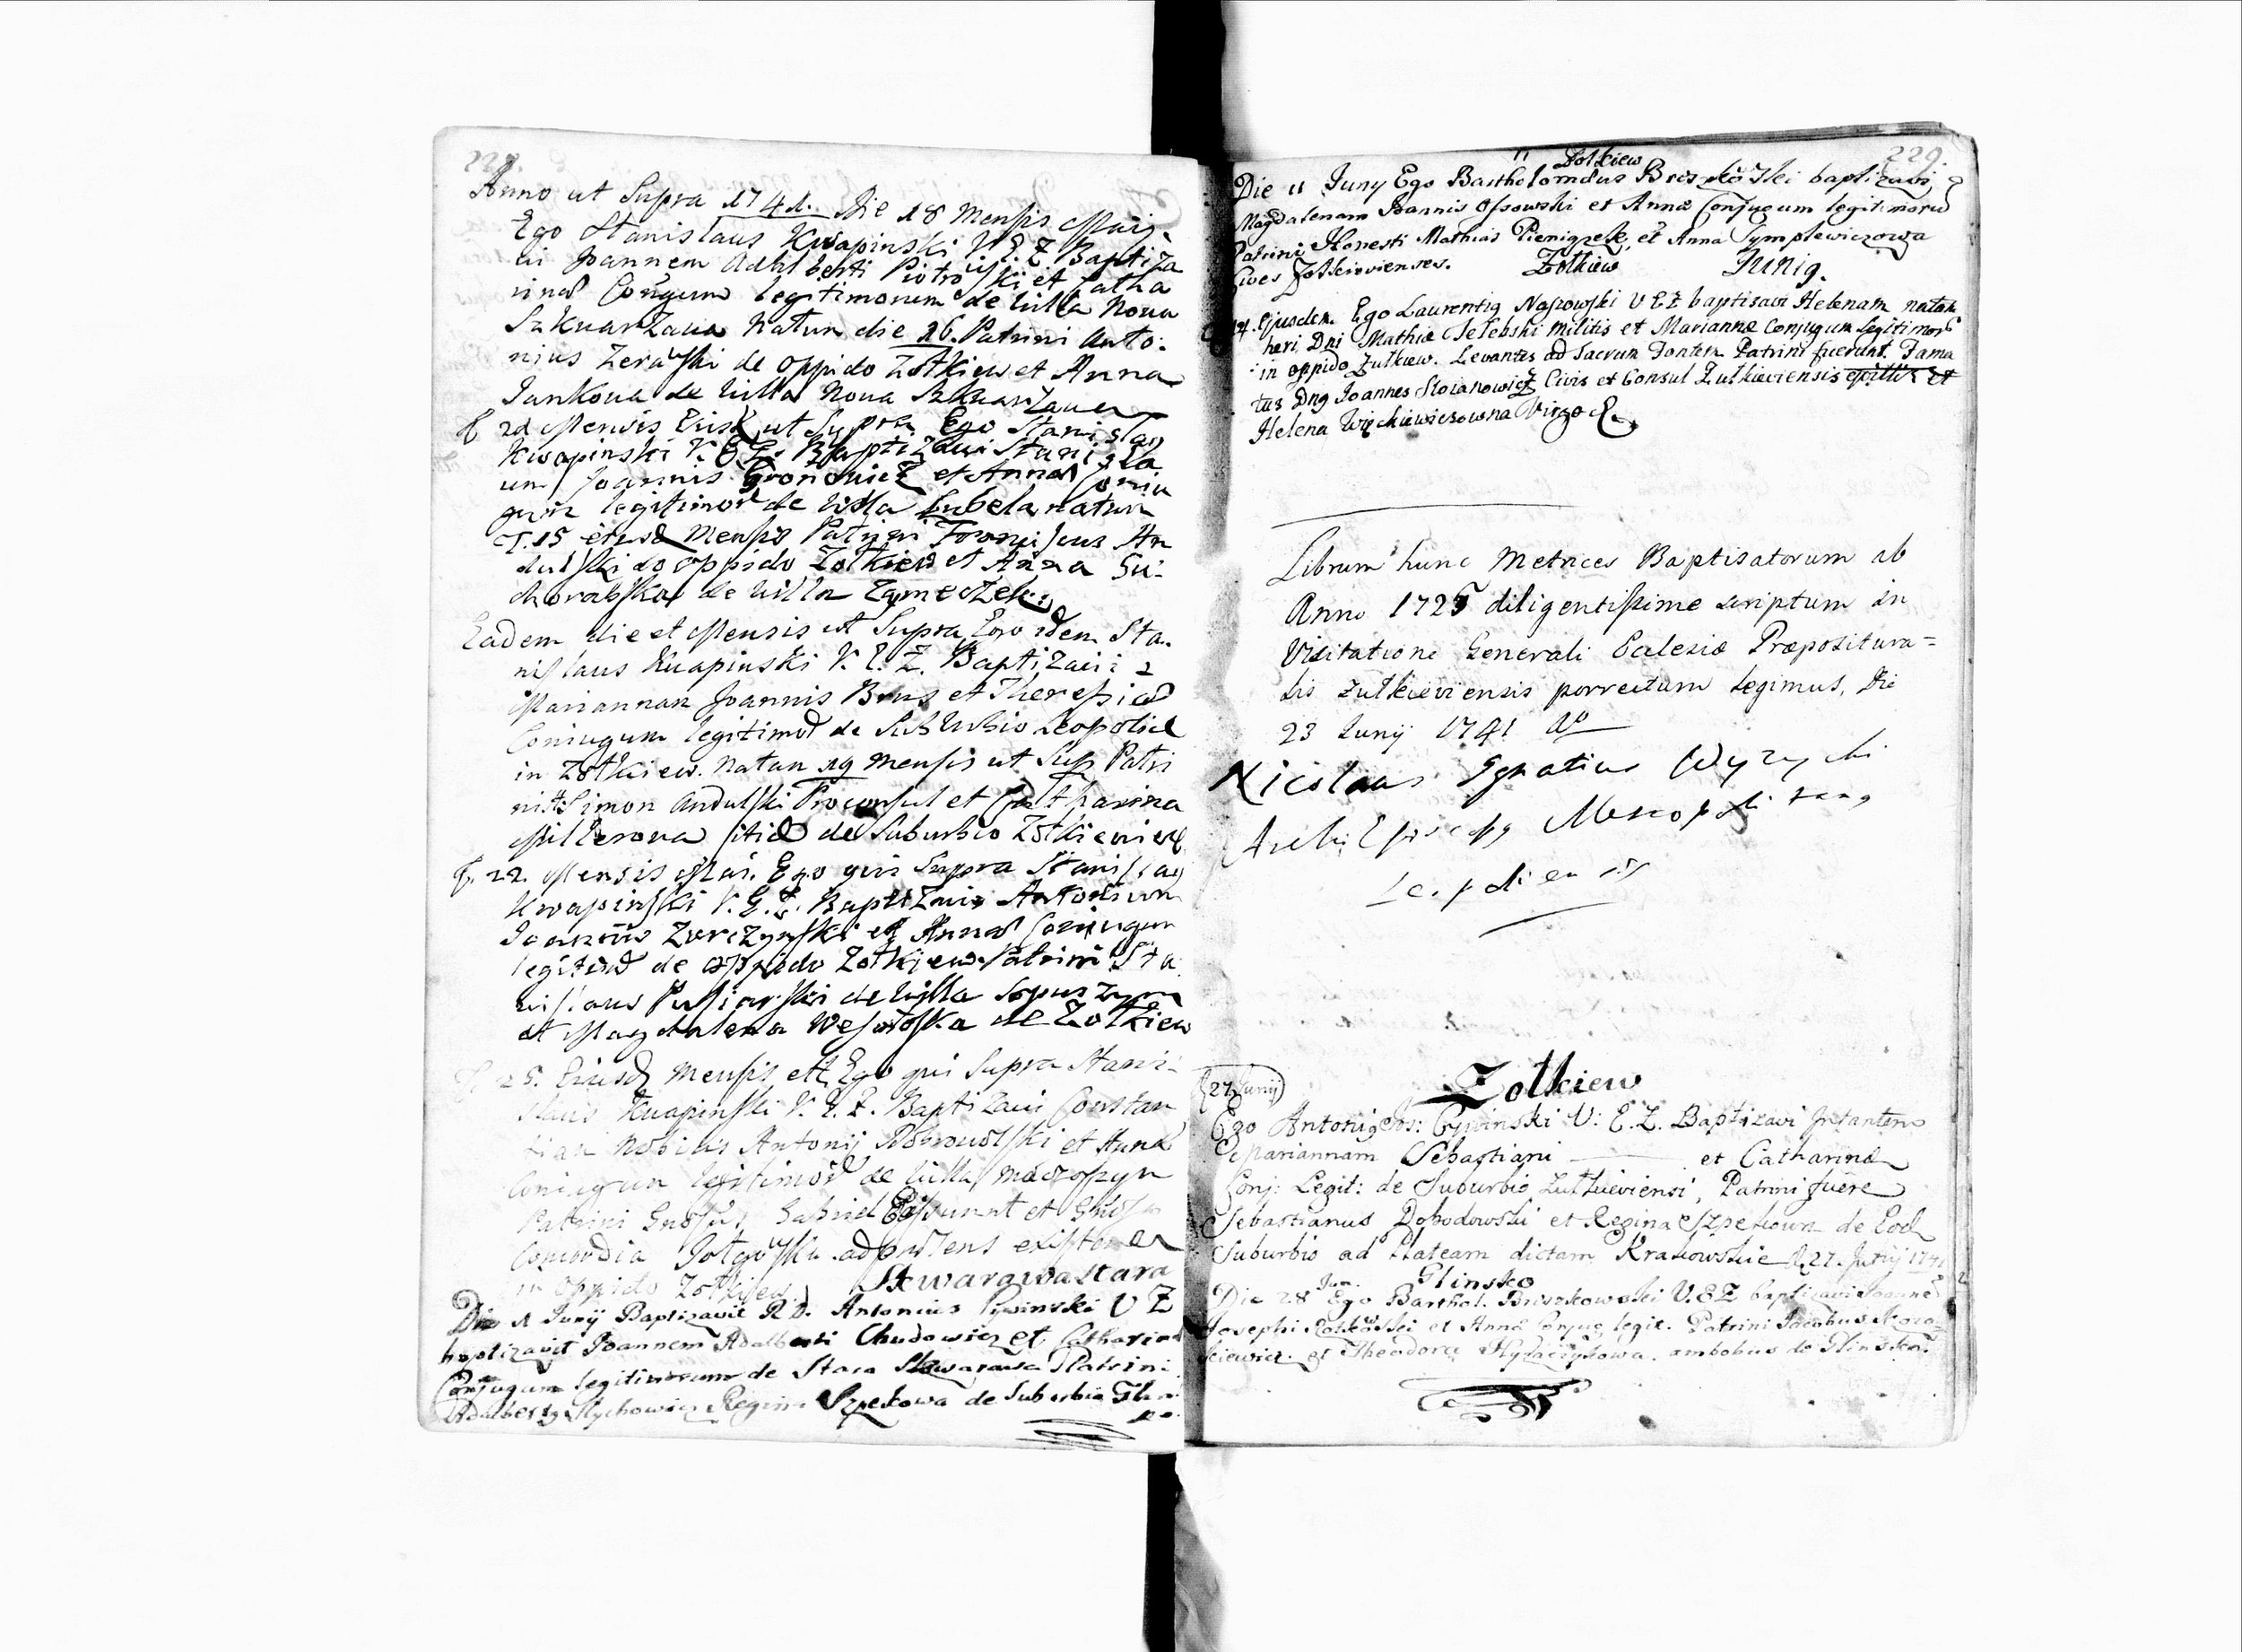 Anno ut Supra 1741. Die 18 Mensis Maij.
Ego Stanislaus Kwapinski V. E. Z Baptiza
vi Joannem Adalberti Piotrowski et Catha
rinæ Conjgum legitimorum de villa Nova
Szkwarzawa Natum die 16. Patrini Anto:
nius Zerawski de oppido Zołkiew et Anna
Jankowa de villa Nova Szkwarzawa
ut Supra Ego Stanislaus
Kwapinski V. E Z. Baptizavi Stanisla
um Joannis Gronowicz et Annæ Coniu
gum legitimor de villa Lubela natum
15 eiusd Mensis Patrini Franciscus An
dulski de oppido Zołkiew et Anna Su:
chorabska de villa Zameczek
Eadem die et Mensis ut Supra Ego idem Sta.
nislaus Kwapinski V. E. Z. Baptizavi
Mariannam Joannis Brus et Theresiæ
Coniugum legitimor de Suburbio Leopolie
in Zołkiew. Natam 19 Mensis ut Sup Patri
ni Simon Andulski Proconsul et Catharina
Millerowa de Suburbio Zołkiewie
22. Mensis Mai. Ego qui Supra Stanislaus
Kwapinski V. E. Z. Baptizavi Antonium
Joannis Zurczynski et Annæ Coniugum
legitimor de oppido Zołkiew. Patrini Sta
nislaus de villa Sopuszyn
et Magdalena Wesołoska de Zołkiew
25. Eiusd Mensis Ego qui Supra Stani:
slaus Kwapinski V. E. Z. Baptizavi Constan
Nobilis Antonij et Annæ
Coniugum legitimor de villa Macoszyn
Patrini Gnosus Gabriel et Gnosa
Concordia
in oppido Zołkiew. Skwarawa stara
Die 11 Junij Baptizavit R. D. Antonius Cywinski V Z
baptizavit Joannem Adalberti Chudowicz et Catharinæ
Conjugum legitimorum de Stara Skwarawa Patrini
Adalbertg Regina Szpekowa de Suburbio Glin
sko
229.
11 Zołkiew
Die 11 Juny Ego Bartholomæus Briszkowski baptizavi
Magdalenam Joannis Ossowski et Annæ Conjugum legitimorū
Patrini Honesti Mathias Pieniązek, et Anna Symplewiczowa
Cives Zołkievienses. Zołkiew Junig.
14. Ejusdem. Ego Laurentig Naszowski V E Z baptisavi Helenam natam
heri Dni Mathiæ Selebski Militis et Mariannæ Conjugum Legitimor
in oppido Zulkiew. Levantes ad Sacrum Fontem Patrini fuerunt. Fama
tus Dng Joannes Stoianowicz Civis et Consul Zulkieviensis et
Helena Więckiewiczowna Virgo
Librum hunc Metrices Baptisatorum ab
Anno 1725 diligentissime scriptum in
Visitatione Generali Ecclesiæ Præpositura=
lis Zulkieviensis porrectum legimus, Die
23 Junij 1741
Nicolaus Ignatius Wyzycki
Archi Episcopg Metropolitang
Leopoliensis
27 Junij
Zolkiew
Ego Antonig Cywinski V: E. Z. Baptizavi Infantem
Mariannam Sebastiani et Catharinæ
Conj: Legit: de Suburbio Zulkieviensi, Patrini fuere
Sebastianus Dobodowski et Regina Szpekowa de Eod
Suburbio ad Plateam dictam Krakowskie d. 27. Junij 1741
Glinsko
Die 28 Jun. Ego Barthol. Briszkowski V. E Z baptizavi Joannē
Josephi et Annæ Conjug legit. Patrini Jacobus
kiewicz et Theodora ambobus de Glinsko.